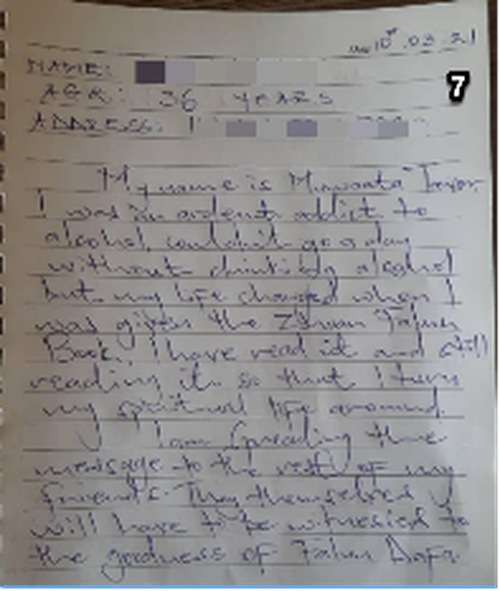 10th.03.21
NAME:
7
AGE: 36 YEARS
ADDRESS:
My name is
I was an ardent addict to
alcohol, couldn't go a day
without drinking alcohol
but my life changed when I
was given the Zhuan Falun
Book. I have read it and still
reading it so that I turn
my spiritual life around.
I am Spreading the
message to the rest of my
friends. They themselves
will have to be witnessed to
the goodness of Falun Dafa.